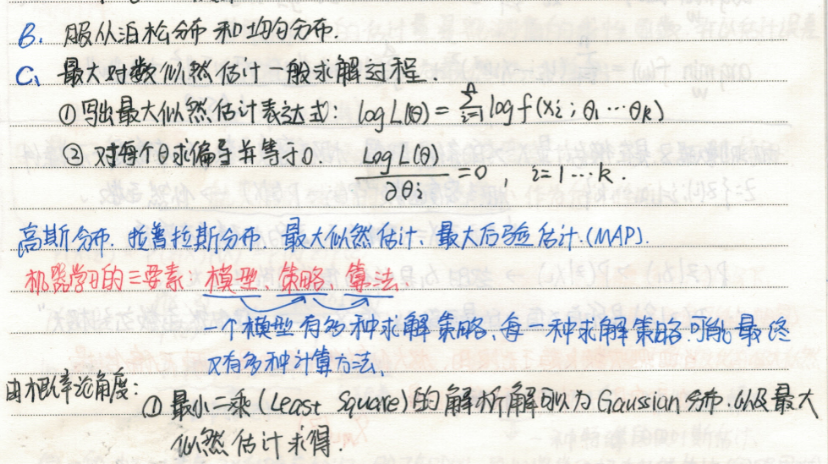 B. 服从泊松分布和均匀分布.
C、最大对数似然估计一般求解过程.
①写出最大似然估计表达式: log L(θ) = Σ_{i=1}^{n} log f(xi ; θ1 … θk)
②对每个θ求偏导并等于0. Log L(θ) / ∂θi = 0 , i=1…k.
高斯分布. 拉普拉斯分布. 最大似然估计、最大后验估计.(MAP).
机器学习的三要素: 模型、策略、算法.
一个模型有多种求解策略、每一种求解策略.可能最终
又有多种计算方法、
由概率论角度:
①最小二乘(Least Square)的解析解可以为Gaussian分布.以及最大
似然估计求得.